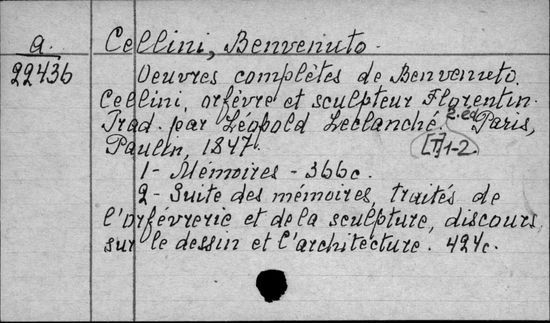 a. Cellini, Benvenuto.
22436 Oeuvres complètes de Benvenuto
Cellini, orfèvre et sculpteur Florentin.
Trad. par Léopold Leclanché. 2.ed Paris,
Paulin, 1847. [T]1-2.
1- Mémoires - 366c.
2- Suite des mémoires, traités de
l'orfévrerie et de la sculpture, discours
sur le dessin et l'architecture. 424c.